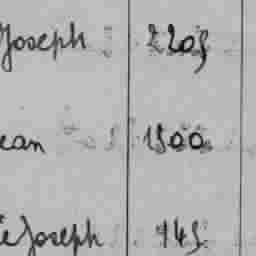 Joseph 2205
ean 1500
ie Joseph 745